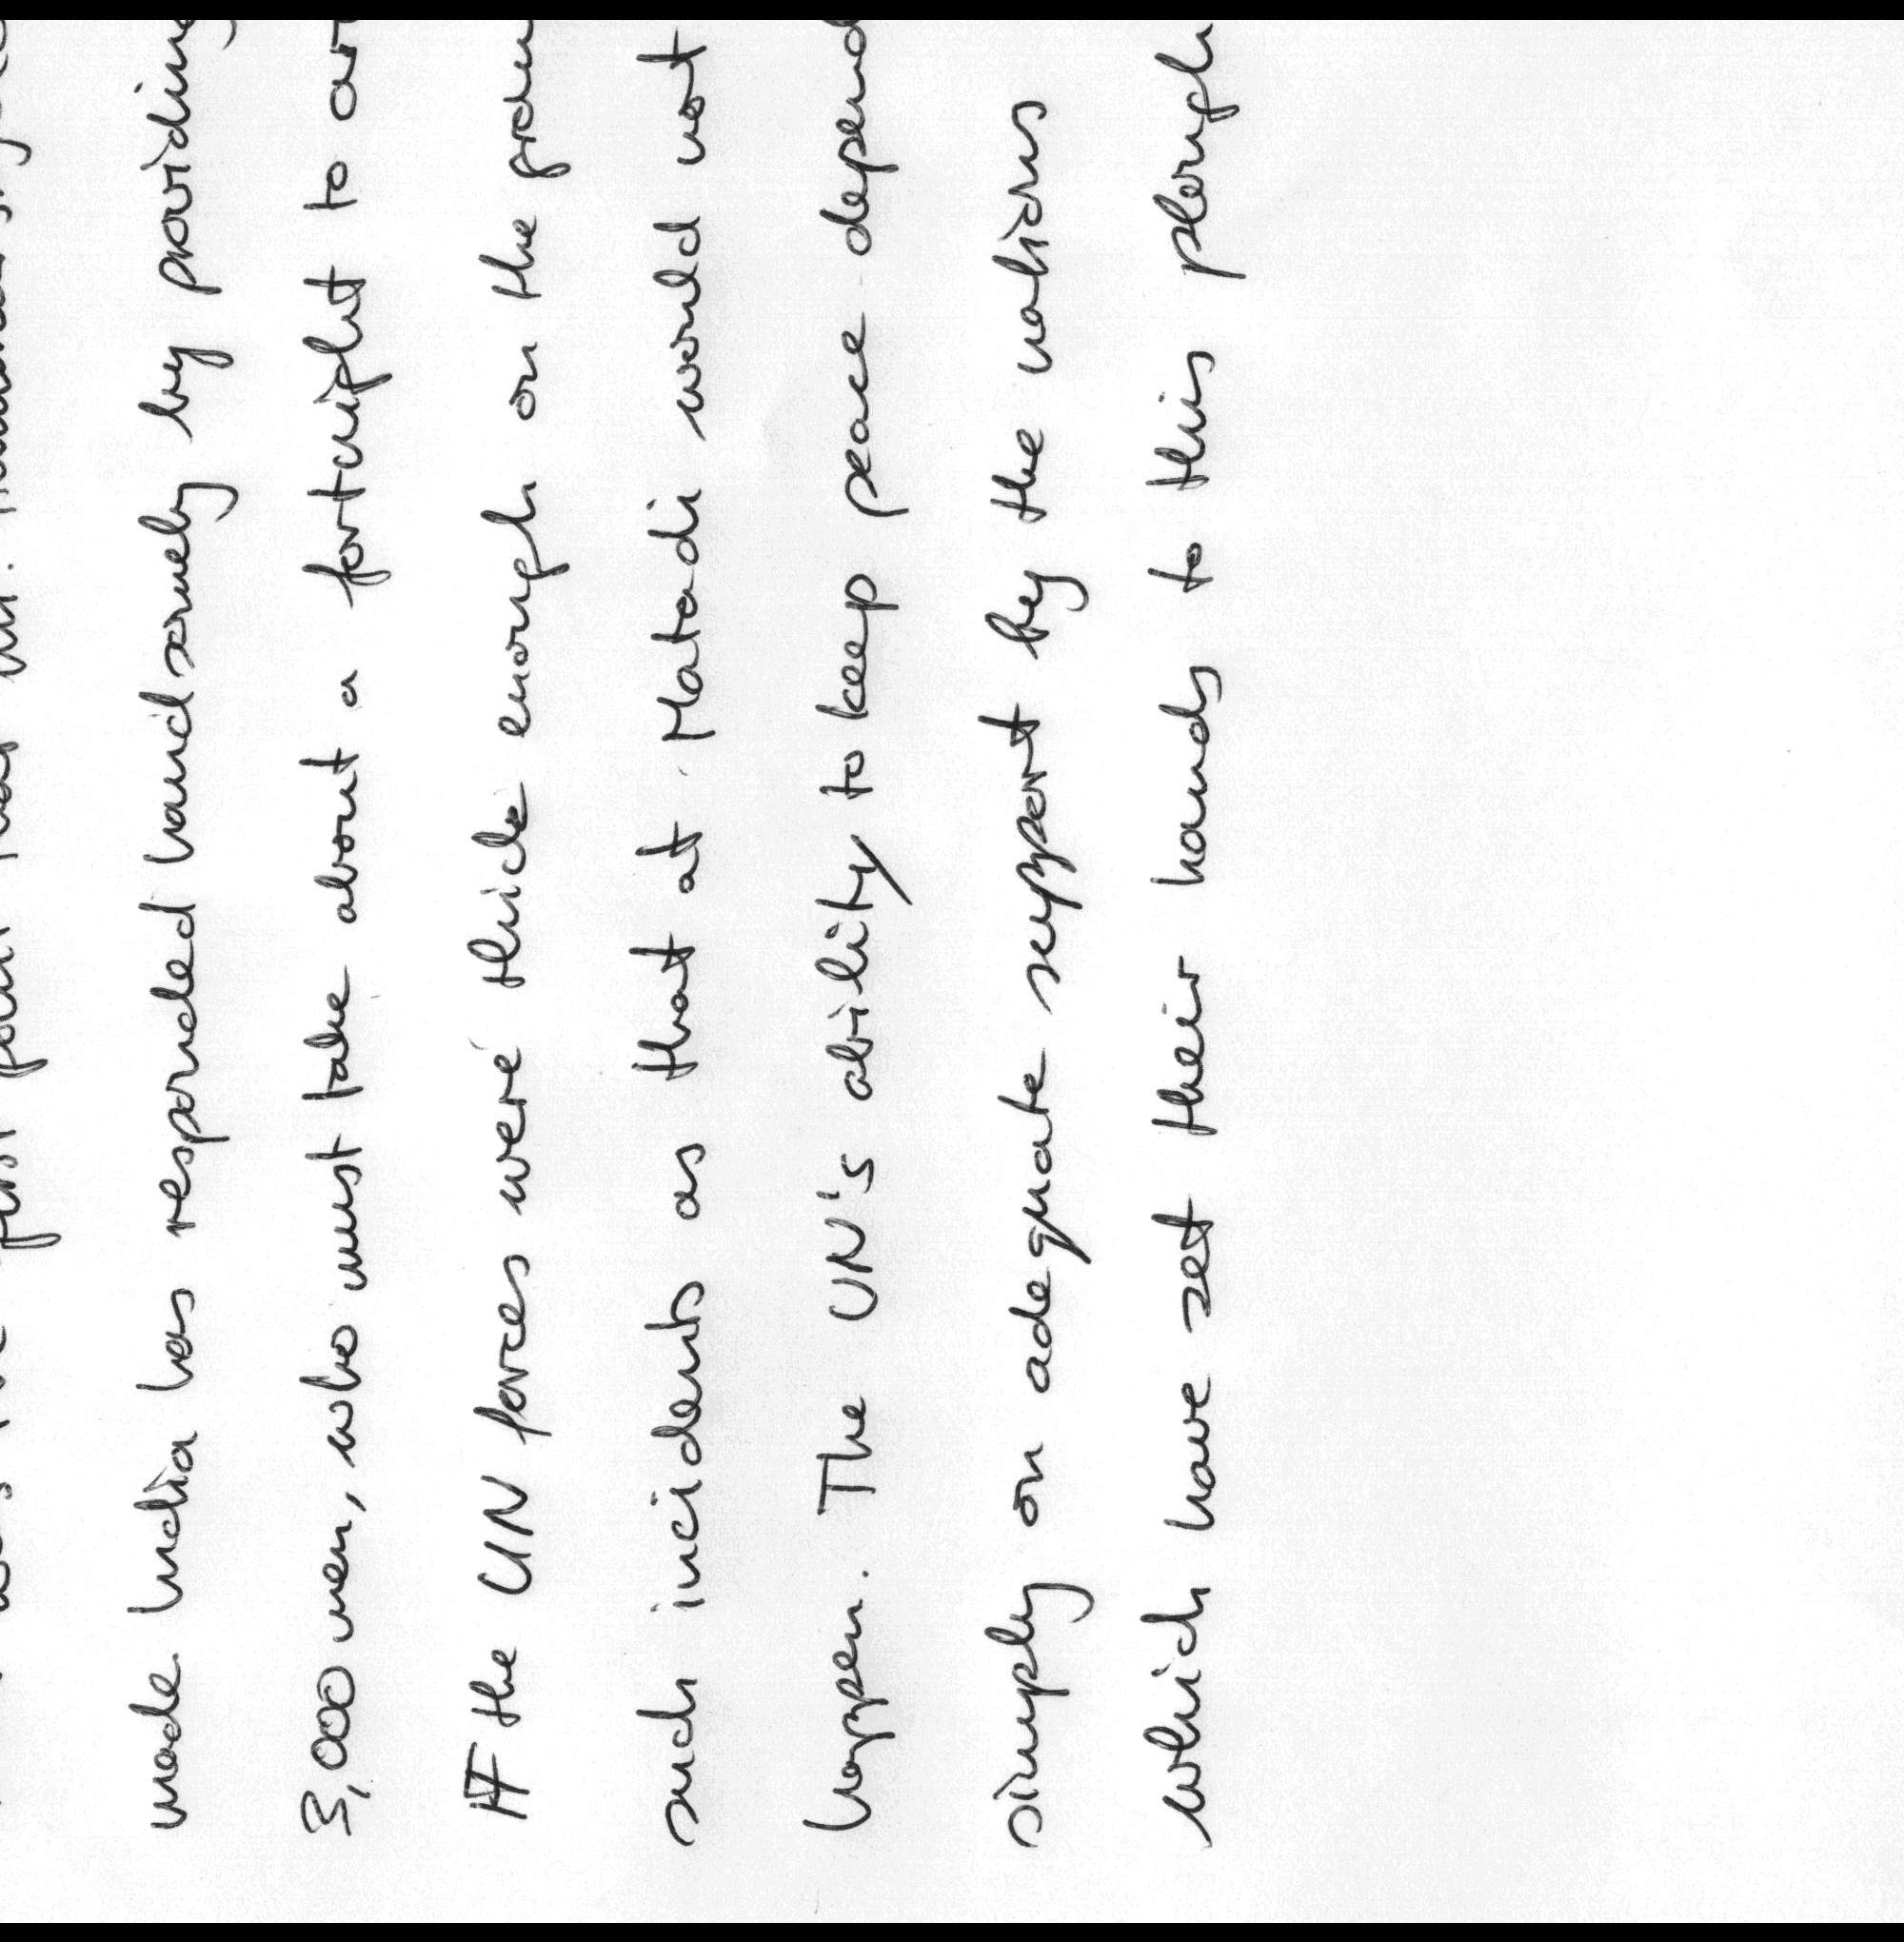 first
made. India has responded handsomely by providing
3,000 men, who must take about a fortnight to
If the UN forces were thick enough on the
such incidents as that at Matadi would not
happen. The UN's ability to keep peace depend
simply on adequate support by the nations
which have set their hands to this plough